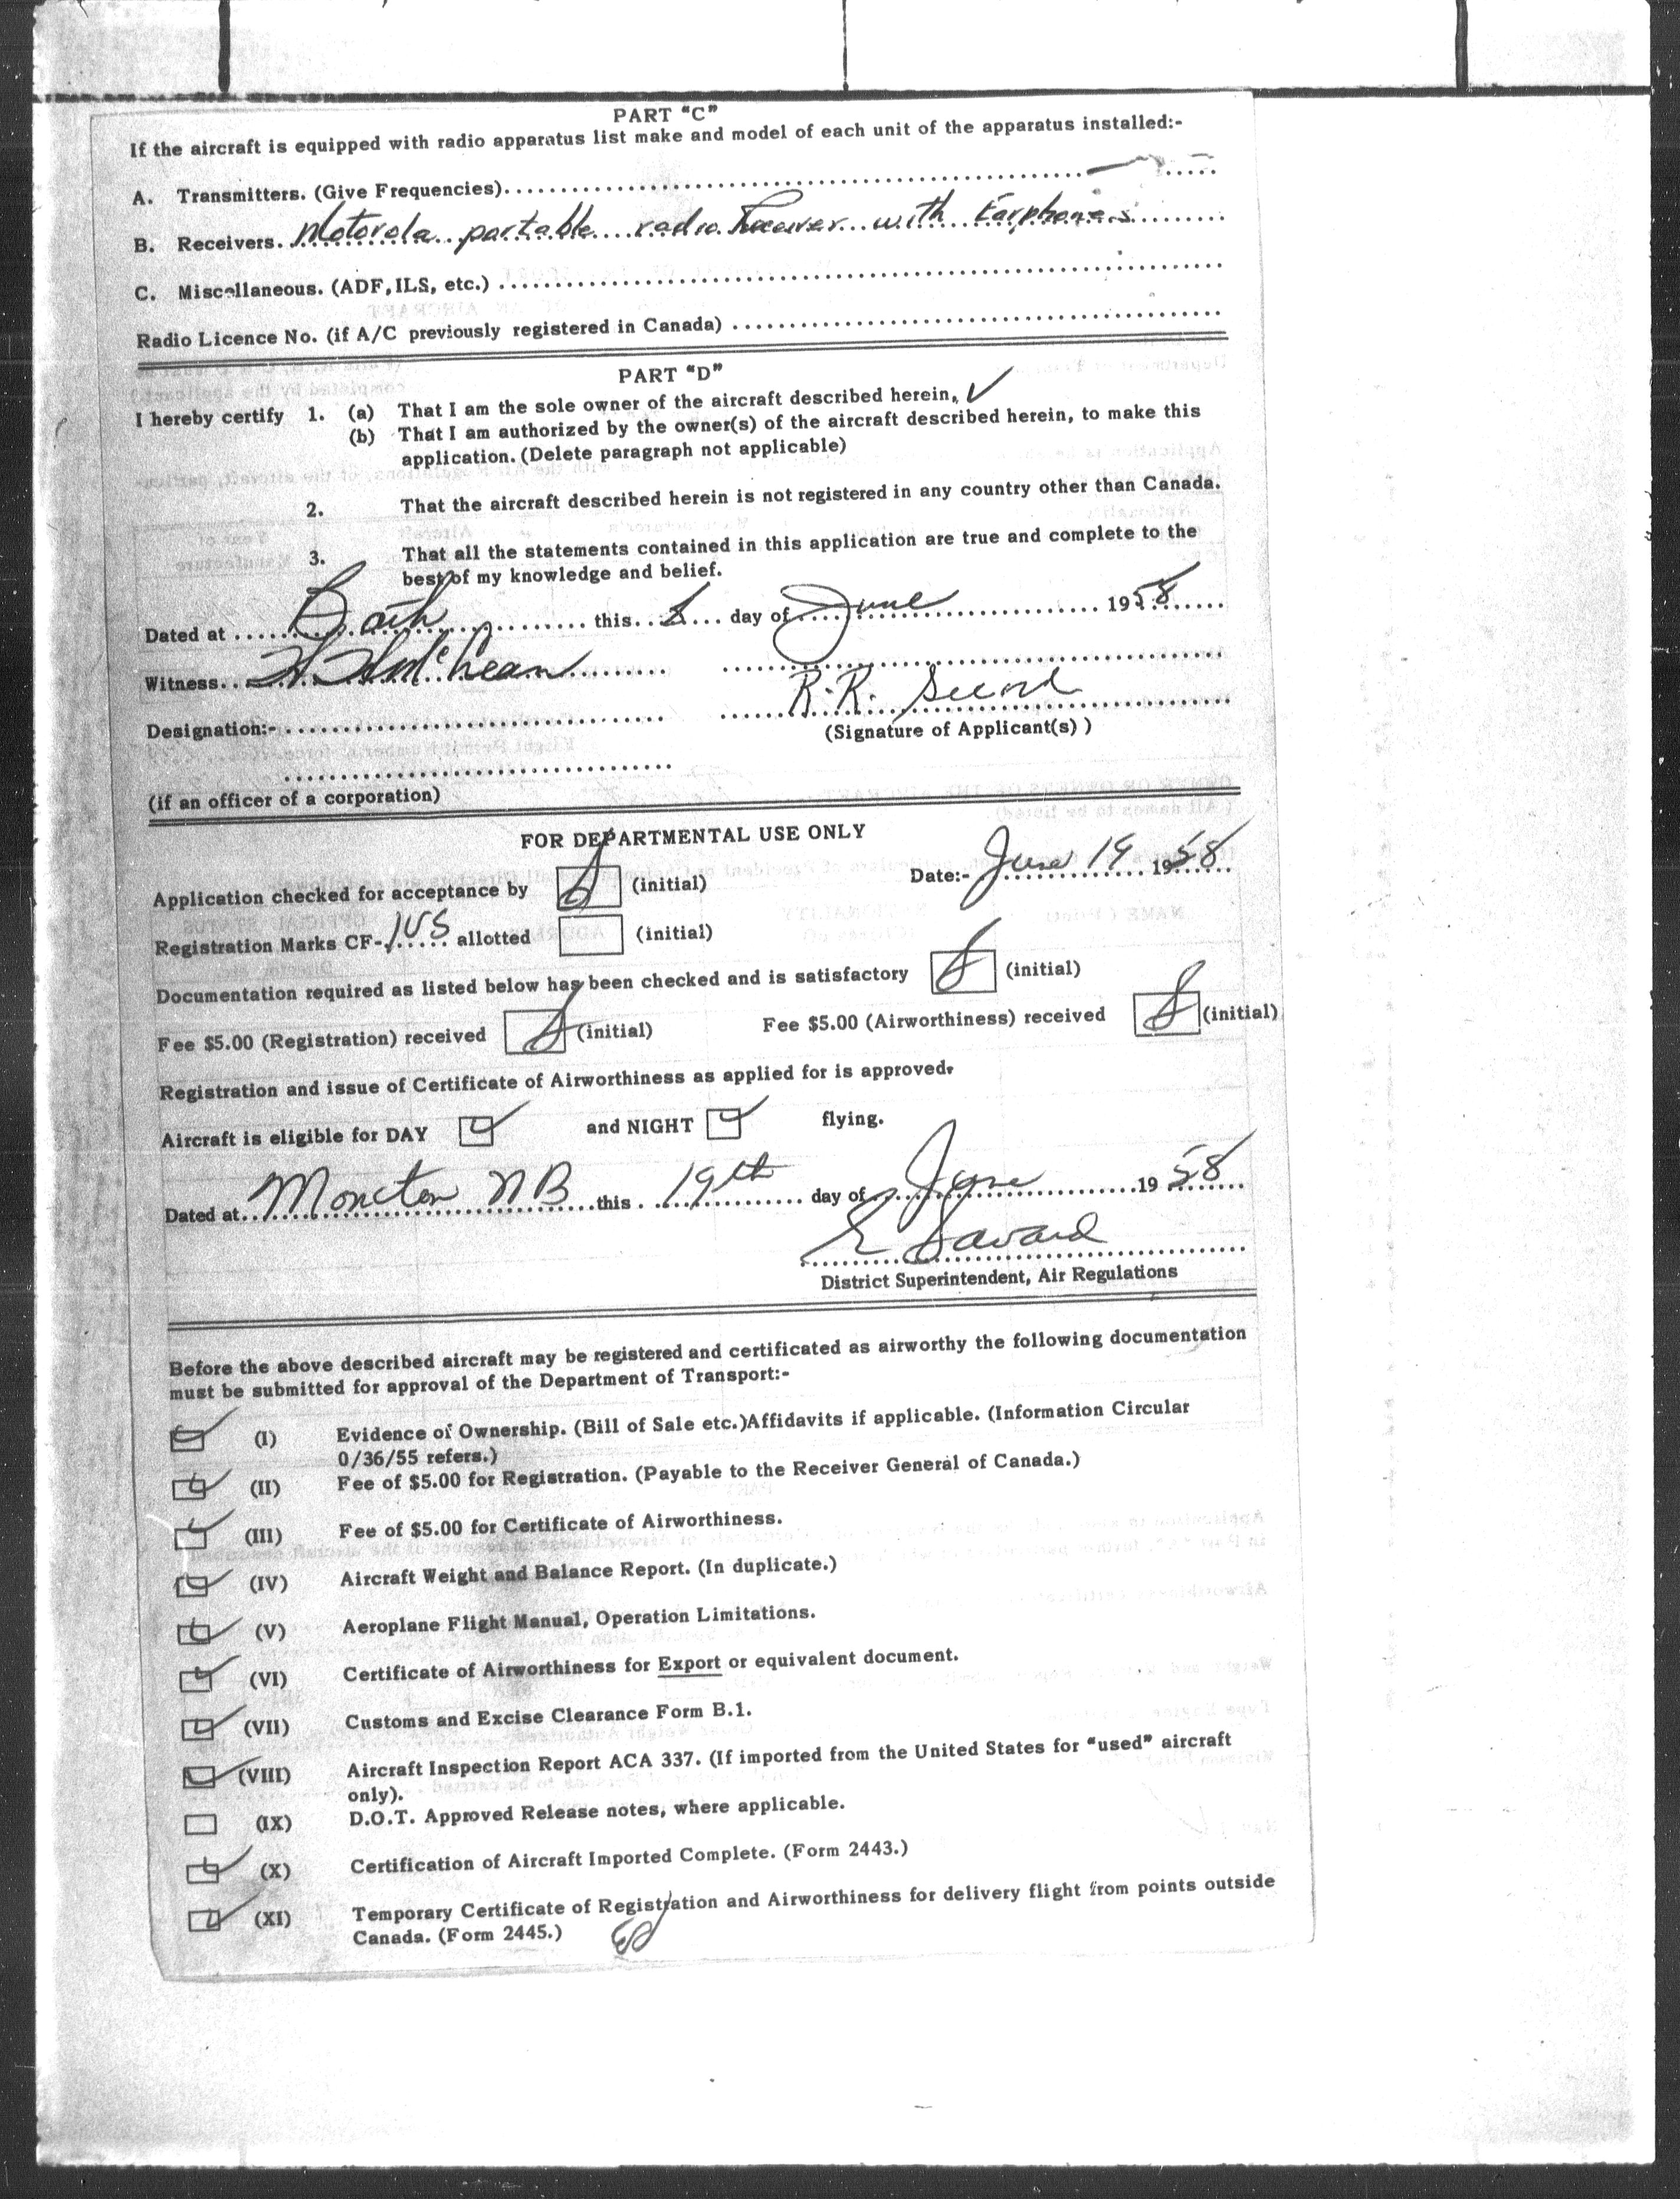 PART "C"
If the aircraft is equipped with radio apparatus list make and model of each unit of the apparatus installed:-
A. Transmitters. (Give Frequencies)
B. Receivers. Motorola portable radio Receiver with Earphones
C. Miscellaneous. (ADF, ILS, etc.)
Radio Licence No. (if A/C previously registered in Canada)
PART "D"
I hereby certify 1. (a) That I am the sole owner of the aircraft described herein, ✓
(b) That I am authorized by the owner(s) of the aircraft described herein, to make this
application. (Delete paragraph not applicable)
2. That the aircraft described herein is not registered in any country other than Canada.
3. That all the statements contained in this application are true and complete to the
best of my knowledge and belief.
Dated at Bath this 8 day of June 1958
Witness McLean
R.R. Secord
Designation:-
(Signature of Applicant(s) )
(if an officer of a corporation)
FOR DEPARTMENTAL USE ONLY
Application checked for acceptance by (initial) Date:- June 19 1958
Registration Marks CF-JUS allotted (initial)
Documentation required as listed below has been checked and is satisfactory (initial)
Fee $5.00 (Registration) received (initial) Fee $5.00 (Airworthiness) received (initial)
Registration and issue of Certificate of Airworthiness as applied for is approved.
Aircraft is eligible for DAY ✓ and NIGHT ✓ flying.
Dated at Moncton NB this 19th day of June 1958
E Savard
District Superintendent, Air Regulations
Before the above described aircraft may be registered and certificated as airworthy the following documentation
must be submitted for approval of the Department of Transport:-
(I) Evidence of Ownership. (Bill of Sale etc.)Affidavits if applicable. (Information Circular
0/36/55 refers.)
(II) Fee of $5.00 for Registration. (Payable to the Receiver General of Canada.)
(III) Fee of $5.00 for Certificate of Airworthiness.
(IV) Aircraft Weight and Balance Report. (In duplicate.)
(V) Aeroplane Flight Manual, Operation Limitations.
(VI) Certificate of Airworthiness for Export or equivalent document.
(VII) Customs and Excise Clearance Form B.1.
(VIII) Aircraft Inspection Report ACA 337. (If imported from the United States for "used" aircraft
only).
(IX) D.O.T. Approved Release notes, where applicable.
(X) Certification of Aircraft Imported Complete. (Form 2443.)
(XI) Temporary Certificate of Registration and Airworthiness for delivery flight from points outside
Canada. (Form 2445.)